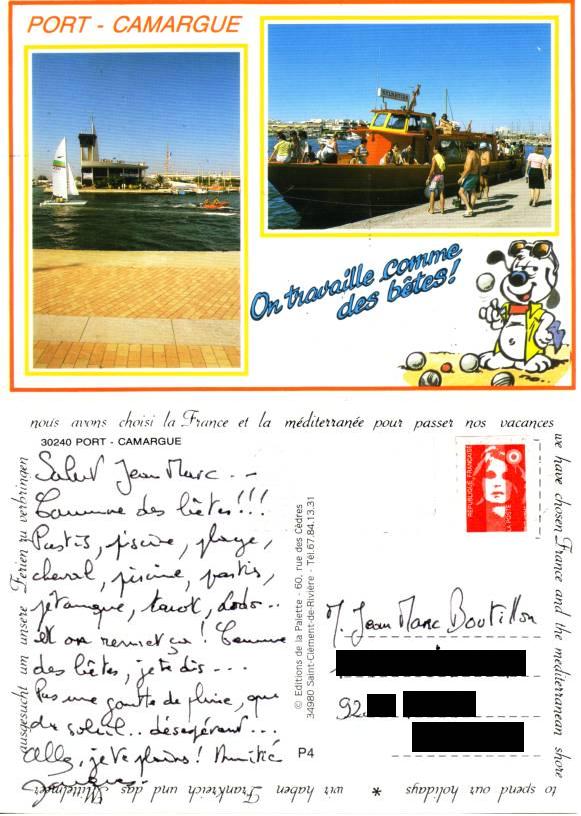 PORT - CAMARGUE
On travaille comme
des bêtes!
nous avons choisi la France et la méditerranée pour passer nos vacances
30240 PORT - CAMARGUE
Salut Jean Marc...
Comme des bêtes!!!
Pastis, piscine, plage,
cheval, piscine, pastis,
pétanque, tarot, dodo..
et on remet ça! Comme
des bêtes, je te dis...
Pas une goutte de pluie, que
du soleil.. désespérant...
Allez, je te plains! Amitié
Jacques.
© Editions de la Palette - 60, rue des Cèdres
34980 Saint-Clément-de-Rivière - Tél.67.84.13.31
P4
REPUBLIQUE FRANÇAISE
LA POSTE
M. Jean Marc Boutillon
92
we have chosen France and the mediterranean shore
to spend our holidays * wir haben Frankreich und das Mittelmeer
ausgesucht um unsere Ferien zu verbringen